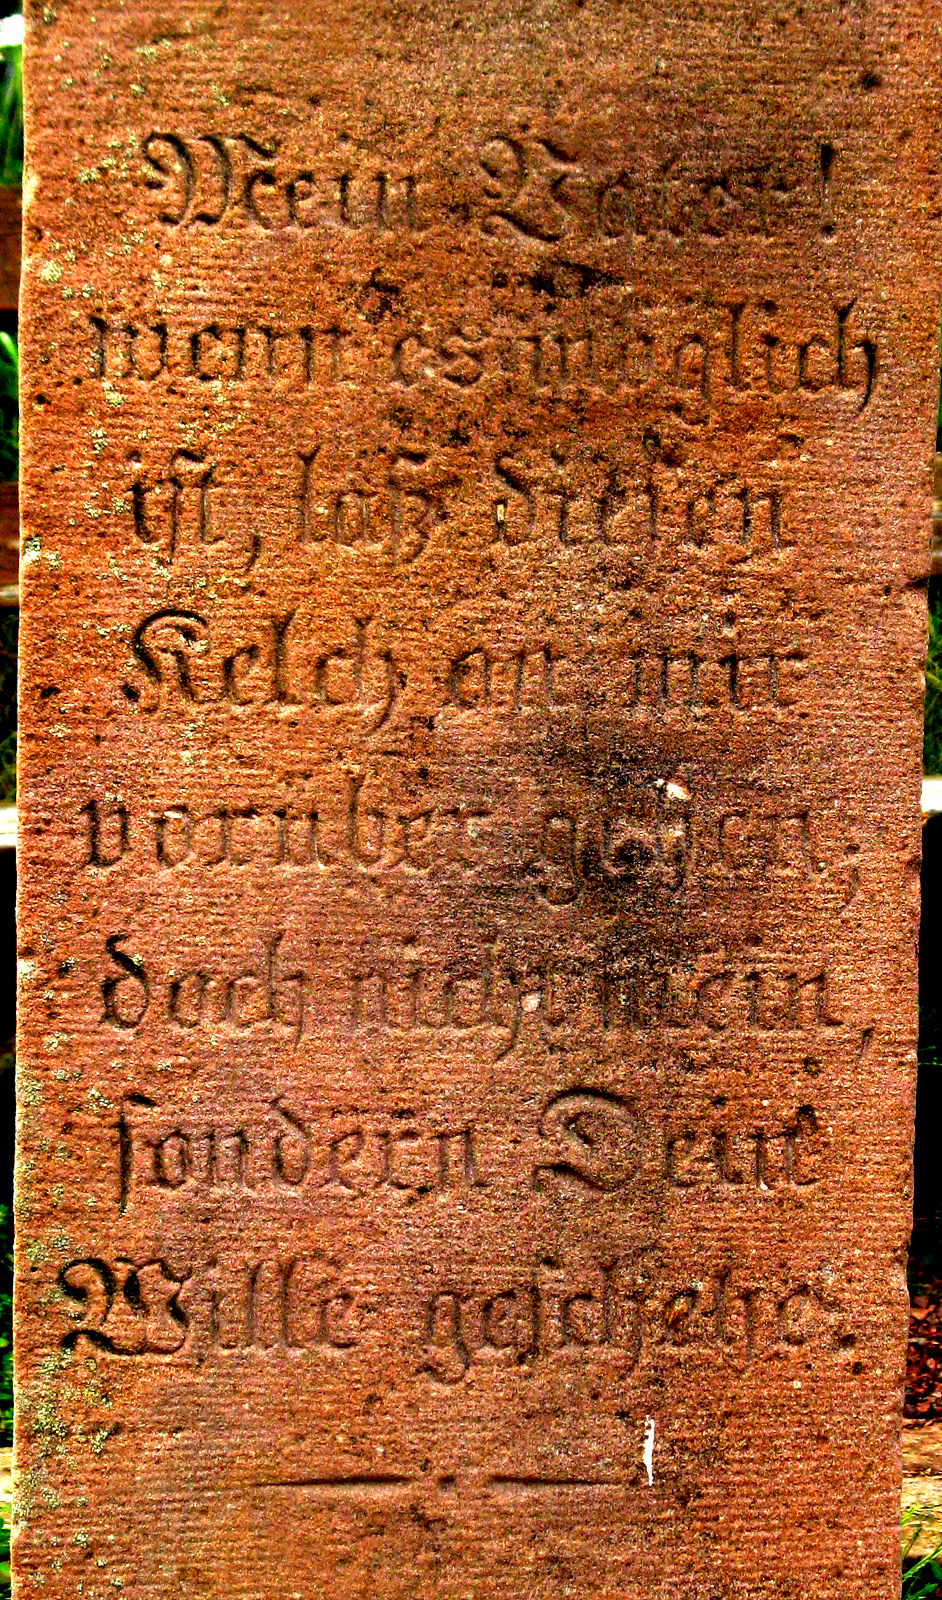 Mein Vater!
wenn es möglich
ist, laß diesen
Kelch an mir
vorüber gehen,
doch nicht mein,
sondern Dein
Wille geschehe.